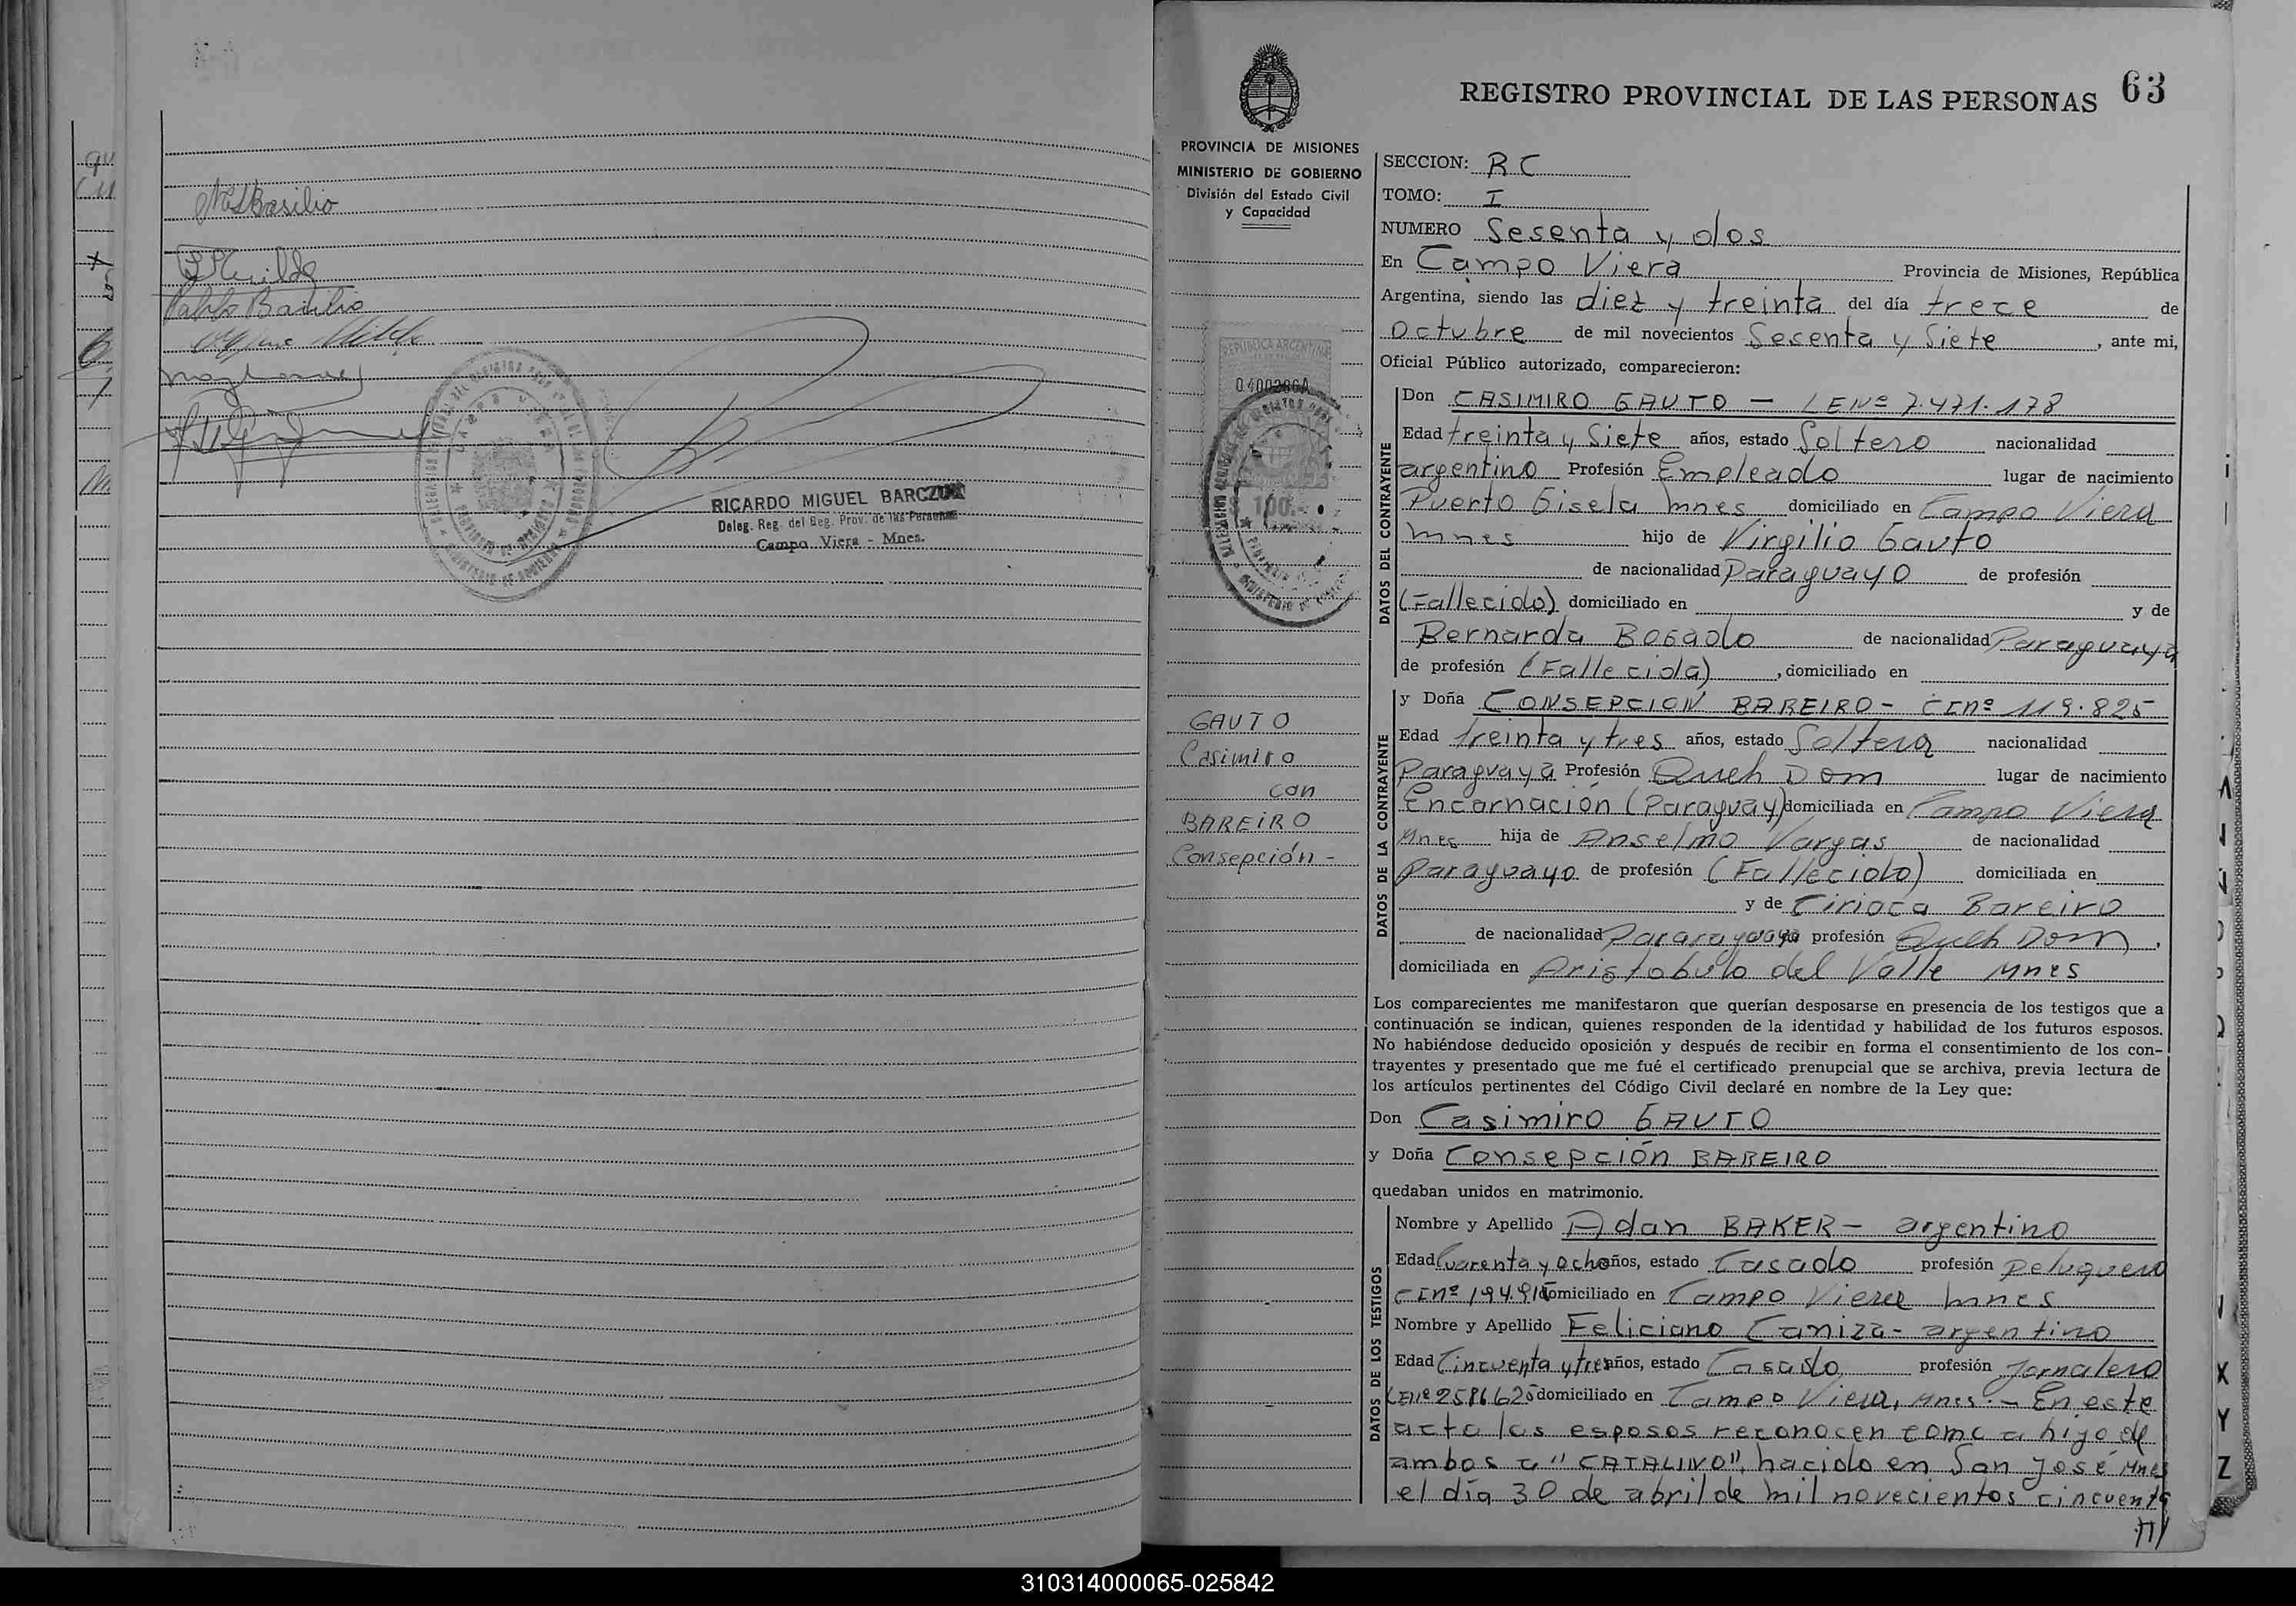 Pablo Basilio
RICARDO MIGUEL BARCZUK
Deleg. Reg. del Reg. Prov. de las Personas
Campo Viera - Mnes.
REGISTRO PROVINCIAL DE LAS PERSONAS 63
PROVINCIA DE MISIONES
MINISTERIO DE GOBIERNO
División del Estado Civil
y Capacidad
REPUBLICA ARGENTINA
100.-
GAUTO
Casimiro
con
BAREIRO
Consepción -
SECCION: RC
TOMO: I
NUMERO Sesenta y dos
En Campo Viera Provincia de Misiones, República
Argentina, siendo las diez y treinta del día trece de
Octubre de mil novecientos Sesenta y Siete, ante mi,
Oficial Público autorizado, comparecieron:
DATOS DEL CONTRAYENTE
Don CASIMIRO GAUTO - LE Nº 7.471.178
Edad treinta y Siete años, estado Soltero nacionalidad
argentino Profesión Empleado lugar de nacimiento
Puerto Gisela Mnes domiciliado en Campo Viera
Mnes hijo de Virgilio Gauto
de nacionalidad Paraguayo de profesión
(Fallecido) domiciliado en y de
Bernarda BOGADO de nacionalidad Paraguaya
de profesión (Fallecida), domiciliado en
DATOS DE LA CONTRAYENTE
y Doña CONSEPCION BAREIRO - CI nº 119.825
Edad treinta y tres años, estado Soltera nacionalidad
Paraguaya Profesión Queh Dom lugar de nacimiento
Encarnación (Paraguay) domiciliada en Campo Viera
Mnes hija de Anselmo Vargas de nacionalidad
Paraguayo de profesión (Fallecido) domiciliada en
y de Ciriaca Bareiro
de nacionalidad profesión Queh Dom,
domiciliada en Aristobulo del Valle Mnes
Los comparecientes me manifestaron que querían desposarse en presencia de los testigos que a
continuación se indican, quienes responden de la identidad y habilidad de los futuros esposos.
No habiéndose deducido oposición y después de recibir en forma el consentimiento de los con-
trayentes y presentado que me fué el certificado prenupcial que se archiva, previa lectura de
los artículos pertinentes del Código Civil declaré en nombre de la Ley que:
Don Casimiro GAUTO
y Doña Consepción BAREIRO
quedaban unidos en matrimonio.
DATOS DE LOS TESTIGOS
Nombre y Apellido Adan BAKER - argentino
Edad Cuarenta y ocho años, estado Casado profesión Peluquero
CI nº domiciliado en Campo Viera Mnes
Nombre y Apellido Feliciano Caniza - argentino
Edad Cincuenta y tres años, estado Casado profesión Jornalero
LE Nº 2586625 domiciliado en Campo Viera, Mnes. - En este
acto los esposos reconocen como a hijo de
ambos a "CATALINO", nacido en San José Mnes
el día 30 de abril de mil novecientos cincuenta
///
X
Y
Z
310314000065-025842